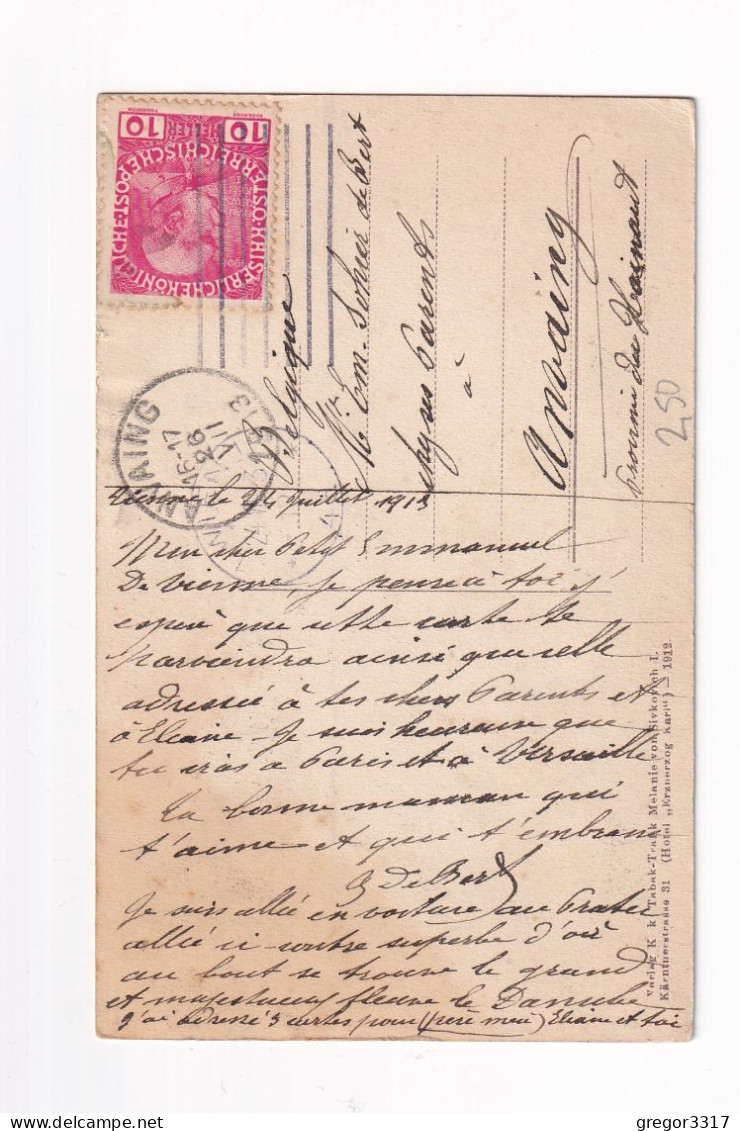 10 HELLER 10
KAISERLICHE KÖNIGLICHE ÖSTERREICHISCHE POST
ANVAING
16-17
26
VII
1913
WIEN
Belgique
Mr Em. Sohier de Bert
chez ses Parents
à
Anvaing
Province du Hainaut
2,50
Vienne, le 24 juillet 1913
Mon cher Petit Emmanuel
De Vienne, je pense à toi j'
espère que cette carte te
parviendra ainsi que celle
adressée à tes chers Parents et
à Eliane. Je suis heureux que
tu iras à Paris et à Versaille
Ta bonne maman qui
t'aime et qui t'embrasse
De Bert
Je suis allée en voiture au Prater
allée ici contre superbe d'où
au bout se trouve le grand
et majestueux fleuve le Danube
j'ai adressé 3 cartes pour (père meu) Eliane et toi
Verlag K. k. Tabak-Trafik Melanie von Sivkovich I.
Kärntnerstrasse 31 (Hotel „Erzherzog Karl“) — 1912
gregor3317